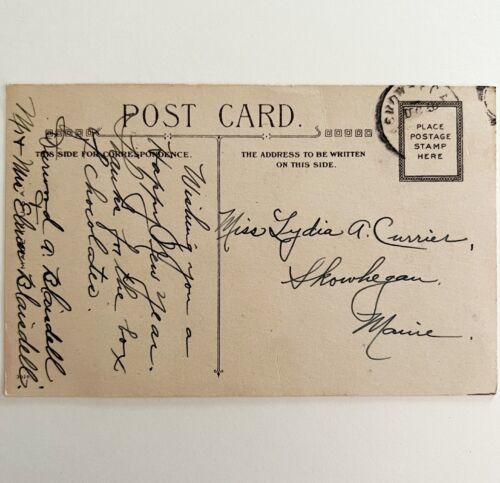 POST CARD.
THIS SIDE FOR CORRESPONDENCE.
THE ADDRESS TO BE WRITTEN
ON THIS SIDE.
PLACE
POSTAGE
STAMP
HERE
Wishing you a
Happy New Year.
for the box
of chocolates.
A. Blaisdell
Mr + Mrs Blaisdell.
Miss Lydia A. Currier,
Skowhegan,
Maine.